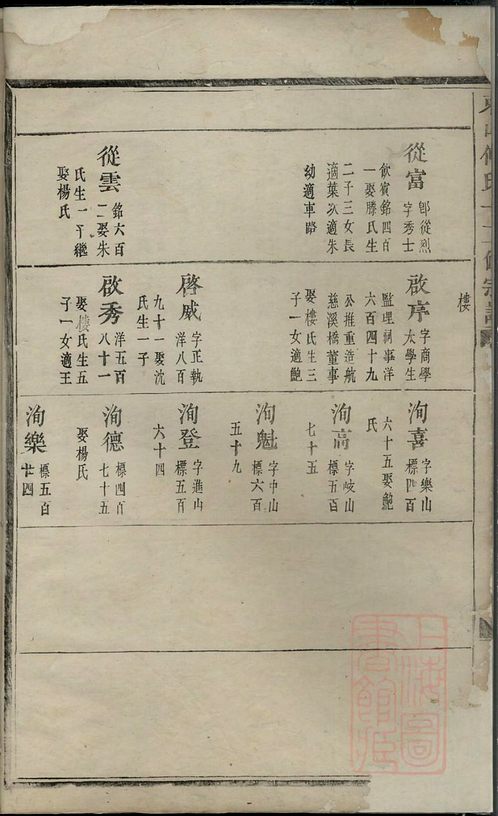 樓
從富
卽從烈
字秀士
飲賓銘四百
一娶滕氏生
二子三女長
適葉次適朱
幼適車路
從雲
銘六百
二娶朱
氏生一子繼
娶楊氏
啟序
字商學
太學生
監理祠事洋
六百四十九
公推重浩航
慈溪橋董事
娶樓氏生三
子一女適鮑
啓咸
字正執
洋八百
九十一娶沈
氏生一子
啟秀
洋五百
八十一
娶樓氏生五
子一女適王
洵喜
字樂山
標四百
六十五娶鮑
氏
洵高
字岐山
標五百
七十五
洵魁
字中山
標六百
五十九
洵登
字進山
標五百
六十四
洵德
標四百
七十五
娶楊氏
洵樂
標五百
廿四
上海圖
書館藏